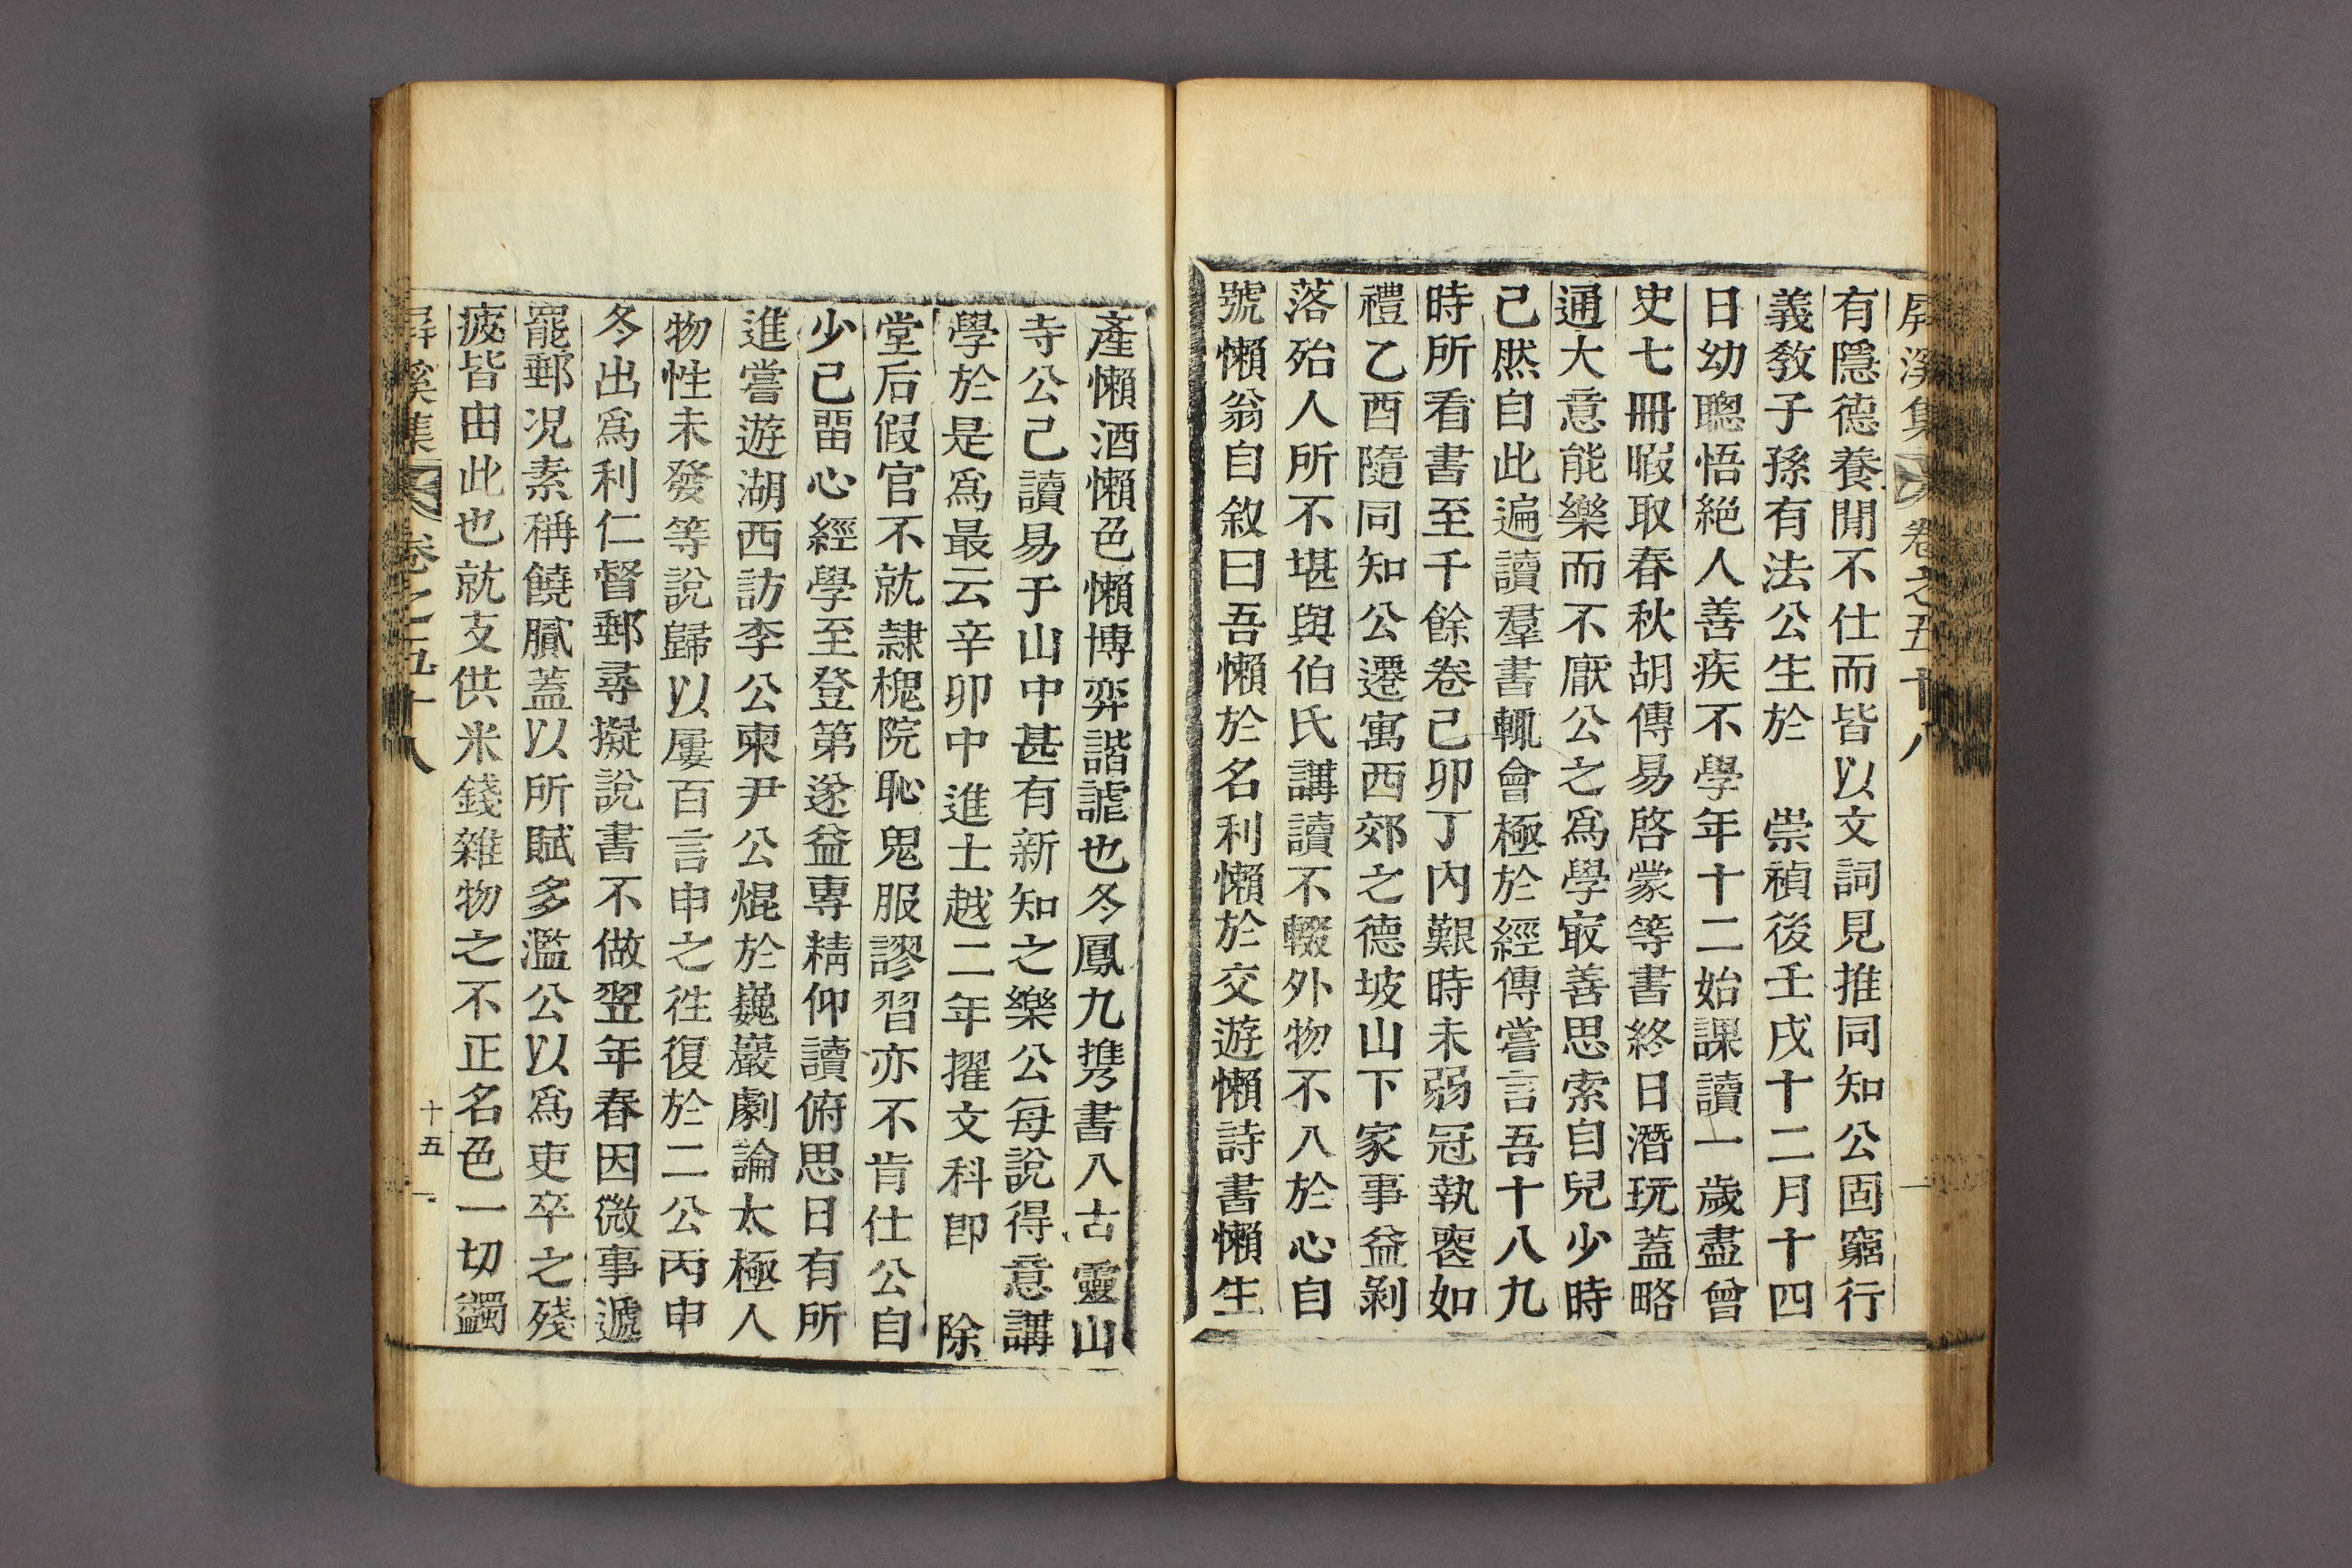 屏溪集 卷之五十八
有隱德養閒不仕而皆以文詞見推同知公固窮行
義敎子孫有法公生於 崇禎後壬戌十二月十四
日幼聰悟絶人善疾不學年十二始課讀一歲盡曾
史七冊暇取春秋胡傳易啓蒙等書終日潛玩蓋略
通大意能樂而不厭公之爲學㝡善思索自兒少時
已然自此遍讀羣書輒會極於經傳嘗言吾十八九
時所看書至千餘卷己卯丁內艱時未弱冠執喪如
禮乙酉隨同知公遷寓西郊之德坡山下家事益剝
落殆人所不堪與伯氏講讀不輟外物不入於心自
號懶翁自敘曰吾懶於名利懶於交遊懶詩書懶生
產懶酒懶色懶博弈諧謔也冬鳳九携書入古靈山
寺公已讀易于山中甚有新知之樂公每說得意講
學於是爲最云辛卯中進士越二年擢文科卽 除
堂后假官不就隷槐院恥鬼服謬習亦不肯仕公自
少已留心經學至登第遂益專精仰讀俯思日有所
進嘗遊湖西訪李公柬尹公焜於巍巖劇論太極人
物性未發等說歸以屢百言申之徃復於二公丙申
冬出爲利仁督郵尋擬說書不做翌年春因微事遞
罷郵況素稱饒膩蓋以所賦多濫公以爲吏卒之殘
疲皆由此也就支供米錢雜物之不正名色一切蠲
屏溪集 卷之五十八 十五